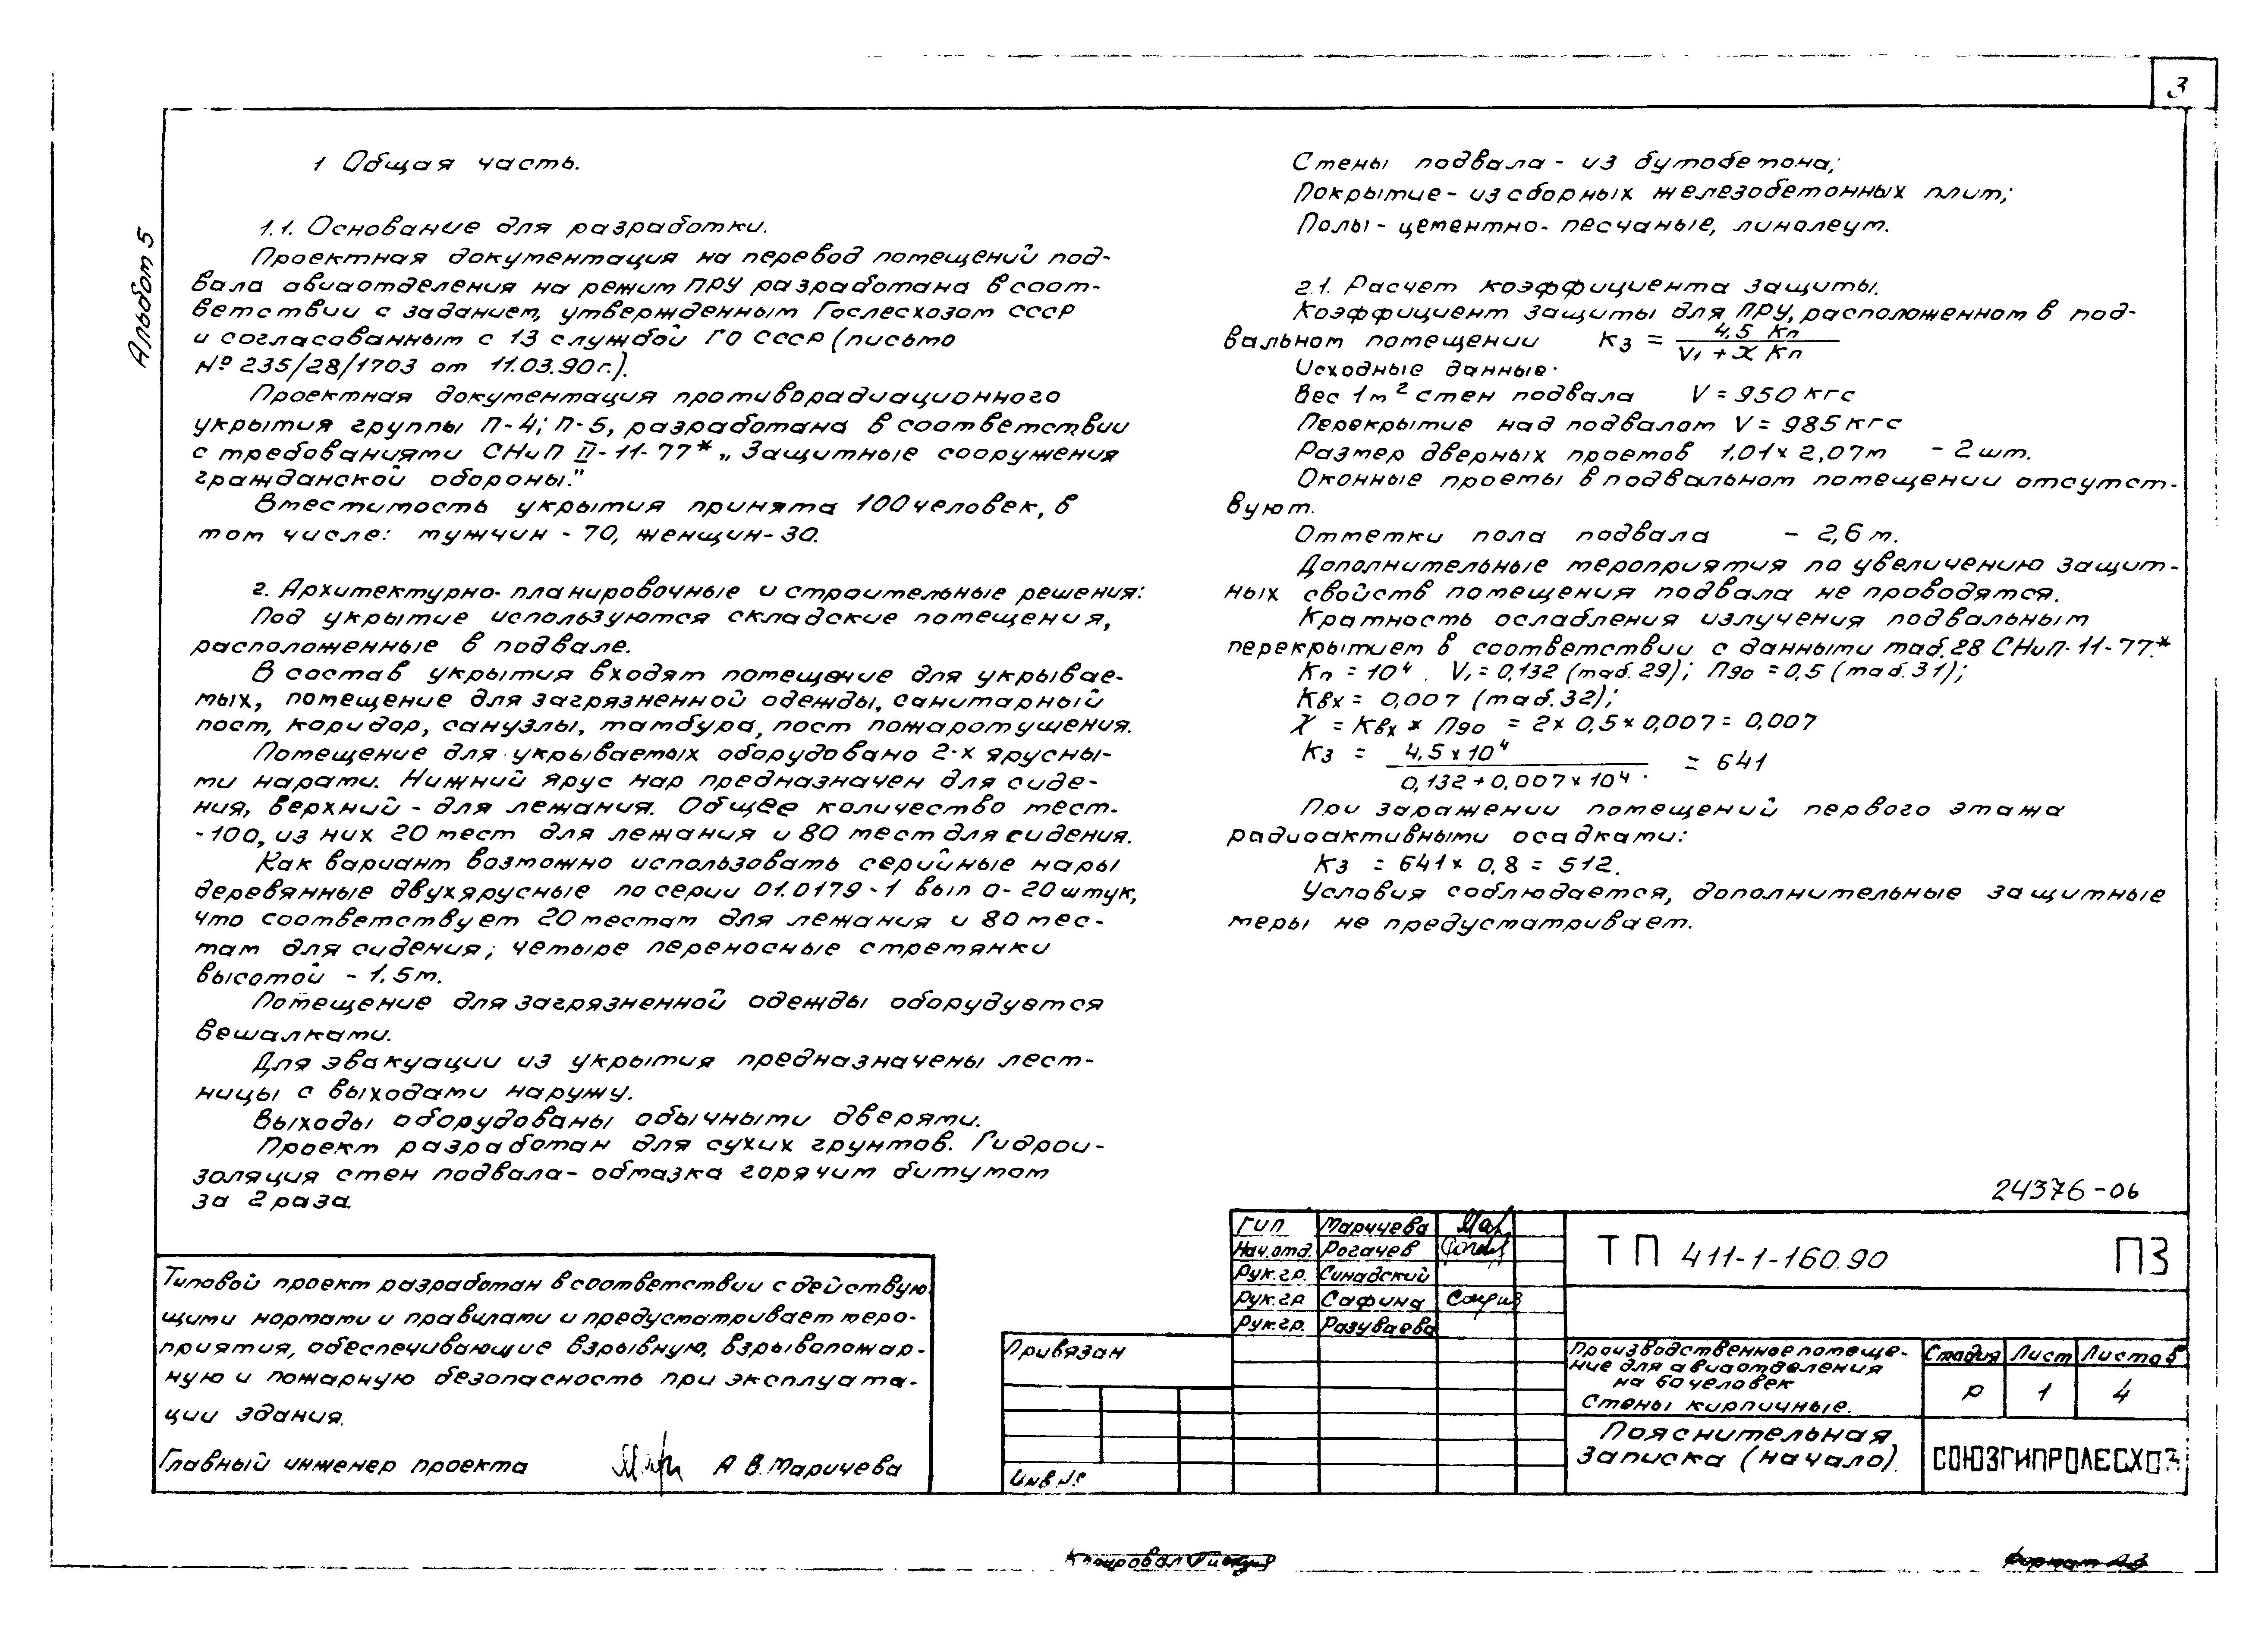 3
Альбом 5
1 Общая часть.
1.1. Основание для разработки.
Проектная документация на перевод помещений под-
вала авиаотделения на режим ПРУ разработана в соот-
ветствии с заданием, утвержденным Гослесхозом СССР
и согласованным с 13 службой ГО СССР (письмо
№ 235/28/1703 от 11.03.90г.).
Проектная документация противорадиационного
укрытия группы П-4; П-5, разработана в соответствии
с требованиями СНиП II-11-77* „Защитные сооружения
гражданской обороны."
Вместимость укрытия принята 100 человек, в
том числе: мужчин - 70, женщин - 30.
2. Архитектурно-планировочные и строительные решения:
Под укрытие используются складские помещения,
расположенные в подвале.
В состав укрытия входят помещение для укрывае-
мых, помещение для загрязненной одежды, санитарный
пост, коридор, санузлы, тамбура, пост пожаротушения.
Помещение для укрываемых оборудовано 2-х ярусны-
ми нарами. Нижний ярус нар предназначен для сиде-
ния, верхний - для лежания. Общее количество мест-
-100, из них 20 мест для лежания и 80 мест для сидения.
Как вариант возможно использовать серийные нары
деревянные двухярусные по серии 01.0179-1 вып 0-20 штук,
что соответствует 20 местам для лежания и 80 мес-
там для сидения; четыре переносные стремянки
высотой - 1,5м.
Помещение для загрязненной одежды оборудуется
вешалками.
Для эвакуации из укрытия предназначены лест-
ницы с выходами наружу.
Выходы оборудованы обычными дверями.
Проект разработан для сухих грунтов. Гидрои-
золяция стен подвала - обмазка горячим битумом
за 2 раза.
Стены подвала - из бутобетона;
Покрытие - из сборных железобетонных плит;
Полы - цементно-песчаные, линолеум.
2.1. Расчет коэффициента защиты.
Коэффициент защиты для ПРУ, расположенном в под-
вальном помещении Кз = 4,5 Кп / V₁ + χ Кп
Исходные данные.
Вес 1м² стен подвала V = 950 кгс
Перекрытие над подвалом V = 985 кгс
Размер дверных проемов 1,01 x 2,07м - 2 шт.
Оконные проемы в подвальном помещении отсутст-
вуют.
Отметки пола подвала - 2,6 м.
Дополнительные мероприятия по увеличению защит-
ных свойств помещения подвала не проводятся.
Кратность ослабления излучения подвальным
перекрытием в соответствии с данными таб.28 СНиП-11-77*
Кп = 10⁴. V₁ = 0,132 (таб. 29); П90 = 0,5 (таб. 31);
Квх = 0,007 (таб. 32);
χ = Квх x П90 = 2 x 0,5 x 0,007 = 0,007
Кз = 4,5 x 10⁴ / 0,132 + 0,007 x 10⁴ = 641
При заражении помещений первого этажа
радиоактивными осадками:
Кз = 641 x 0,8 = 512.
Условия соблюдается, дополнительные защитные
меры не предусматривает.
24376-06
Типовой проект разработан в соответствии с действую
щими нормами и правилами и предусматривает меро-
приятия, обеспечивающие взрывную, взрывопожар-
ную и пожарную безопасность при эксплуата-
ции здания.
Главный инженер проекта А В. Маричева
Привязан
Инв.№
ГИП Маричева
Нач.отд. Рогачев
Рук.гр. Синадский
Рук.гр Сафина
Рук.гр. Разуваева
ТП 411-1-160.90 ПЗ
Производственное помеще-
ние для авиаотделения
на 60 человек
Стены кирпичные.
Стадия Лист Листов
Р 1 4
Пояснительная
записка (начало).
СОЮЗГИПРОЛЕСХОЗ
Копировал
Формат А3